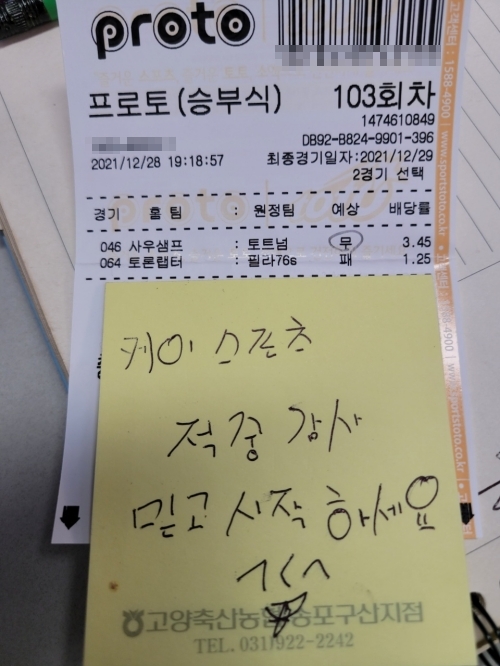 proto
프로토(승부식) 103회차
1474610849
DB92-B824-9901-396
2021/12/28 19:18:57 최종경기일자:2021/12/29
2경기 선택
경기 홈 팀 : 원정팀 예상 배당률
046 사우샘프 : 토트넘 무 3.45
064 토론랩터 : 필라76s 패 1.25
고객센터 : 1588-4900 | www.sportstoto.co.kr
케이 스포츠
적중 감사
믿고 시작 하세요
^^
고양축산농협 송포구산지점
TEL. 031)922-2242